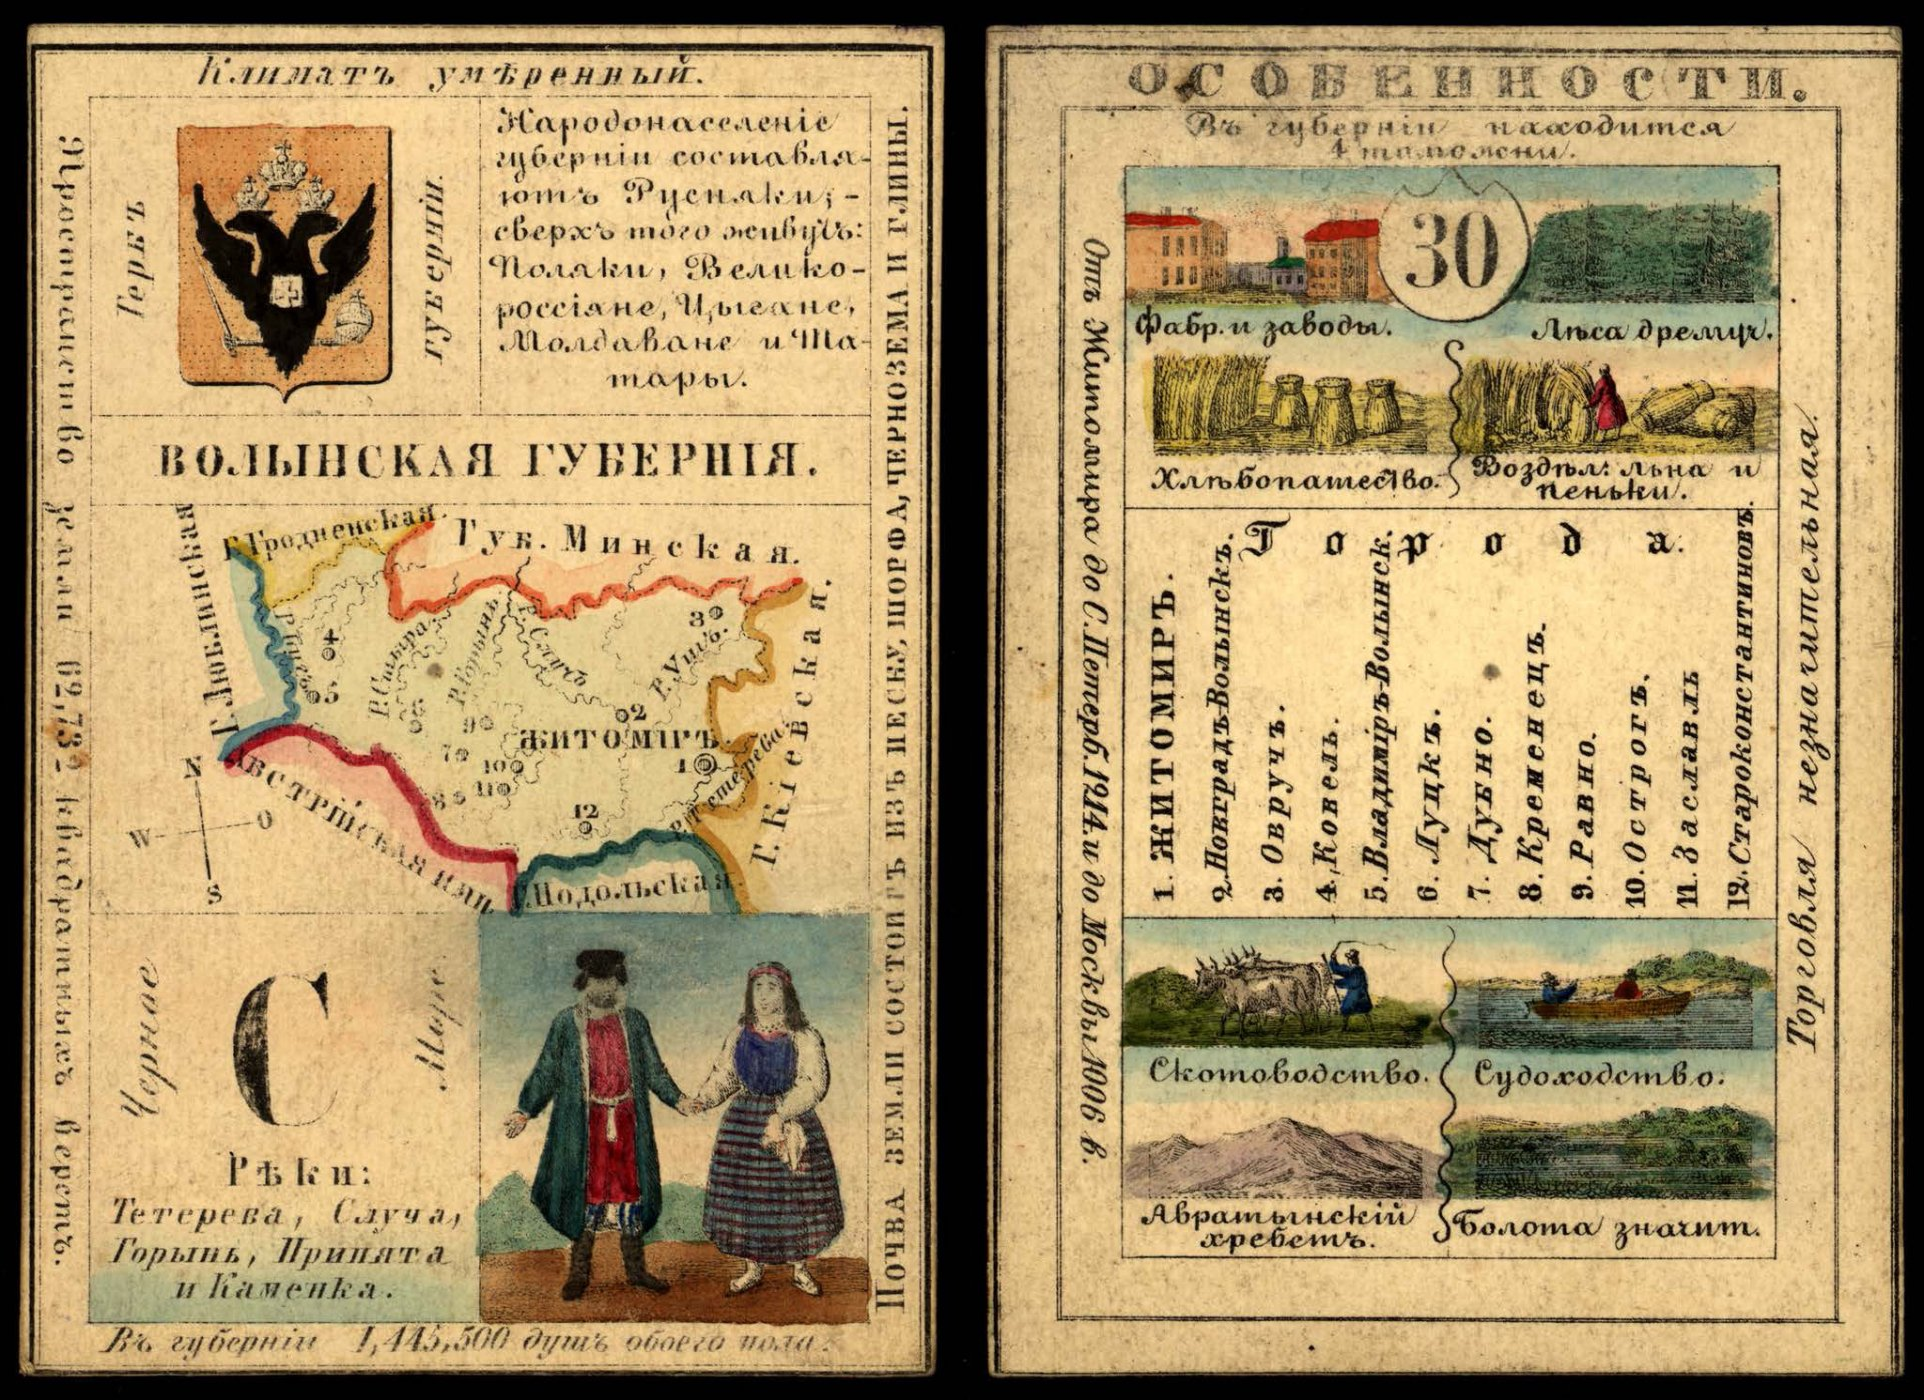 Климатъ умѣренный.
Пространство земли 62,732 квадратныхъ верстъ.
Гербъ
губерніи.
Народонаселеніе
губерніи составля-
ютъ Русняки; -
сверхъ того живутъ:
Поляки, Велико-
россіяне, Цыгане,
Молдаване и Та-
тары.
ВОЛЫНСКАЯ ГУБЕРНІЯ.
Г. Гродненская.
Губ. Минская.
Г. Люблинская
Р. Стыра.
Р. Горынь.
Р. Случь
Р. Ушь.
3
4
5
6
2
9
7
10
11
8
12
ЖИТОМІРЪ.
1
Р. Тетерева
Г. Кіевская.
Австрійская Имп
Г. Подольская.
N
W
O
S
Черное
С
Море.
Рѣки:
Тетерева, Случа,
Горынь, Припята
и Каменка.
Почва земли состоитъ изъ песку, шорфа, чернозема и глины.
Въ губерніи 1,445,500 душъ обоего пола.
ОСОБЕННОСТИ.
Въ губерніи находится
4 таможни.
Отъ Житоміра до С. Петерб. 1214. и до Москвы 1006 в.
30
Фабр. и заводы.
Лѣса дремуч.
Хлѣбопашество.
Воздѣл: льна и
пеньки.
Города.
1. ЖИТОМИРЪ.
2. Новградъ-Волынскъ.
3. Овручъ.
4. Ковель.
5. Владиміръ-Волынск.
6. Луцкъ.
7. Дубно.
8. Кременецъ.
9. Равно.
10. Острогъ.
11. Заславль
12. Староконстантиновъ.
Скотоводство.
Судоходство.
Авратынскій
хребетъ.
Болота значит.
Торговля незначительная.